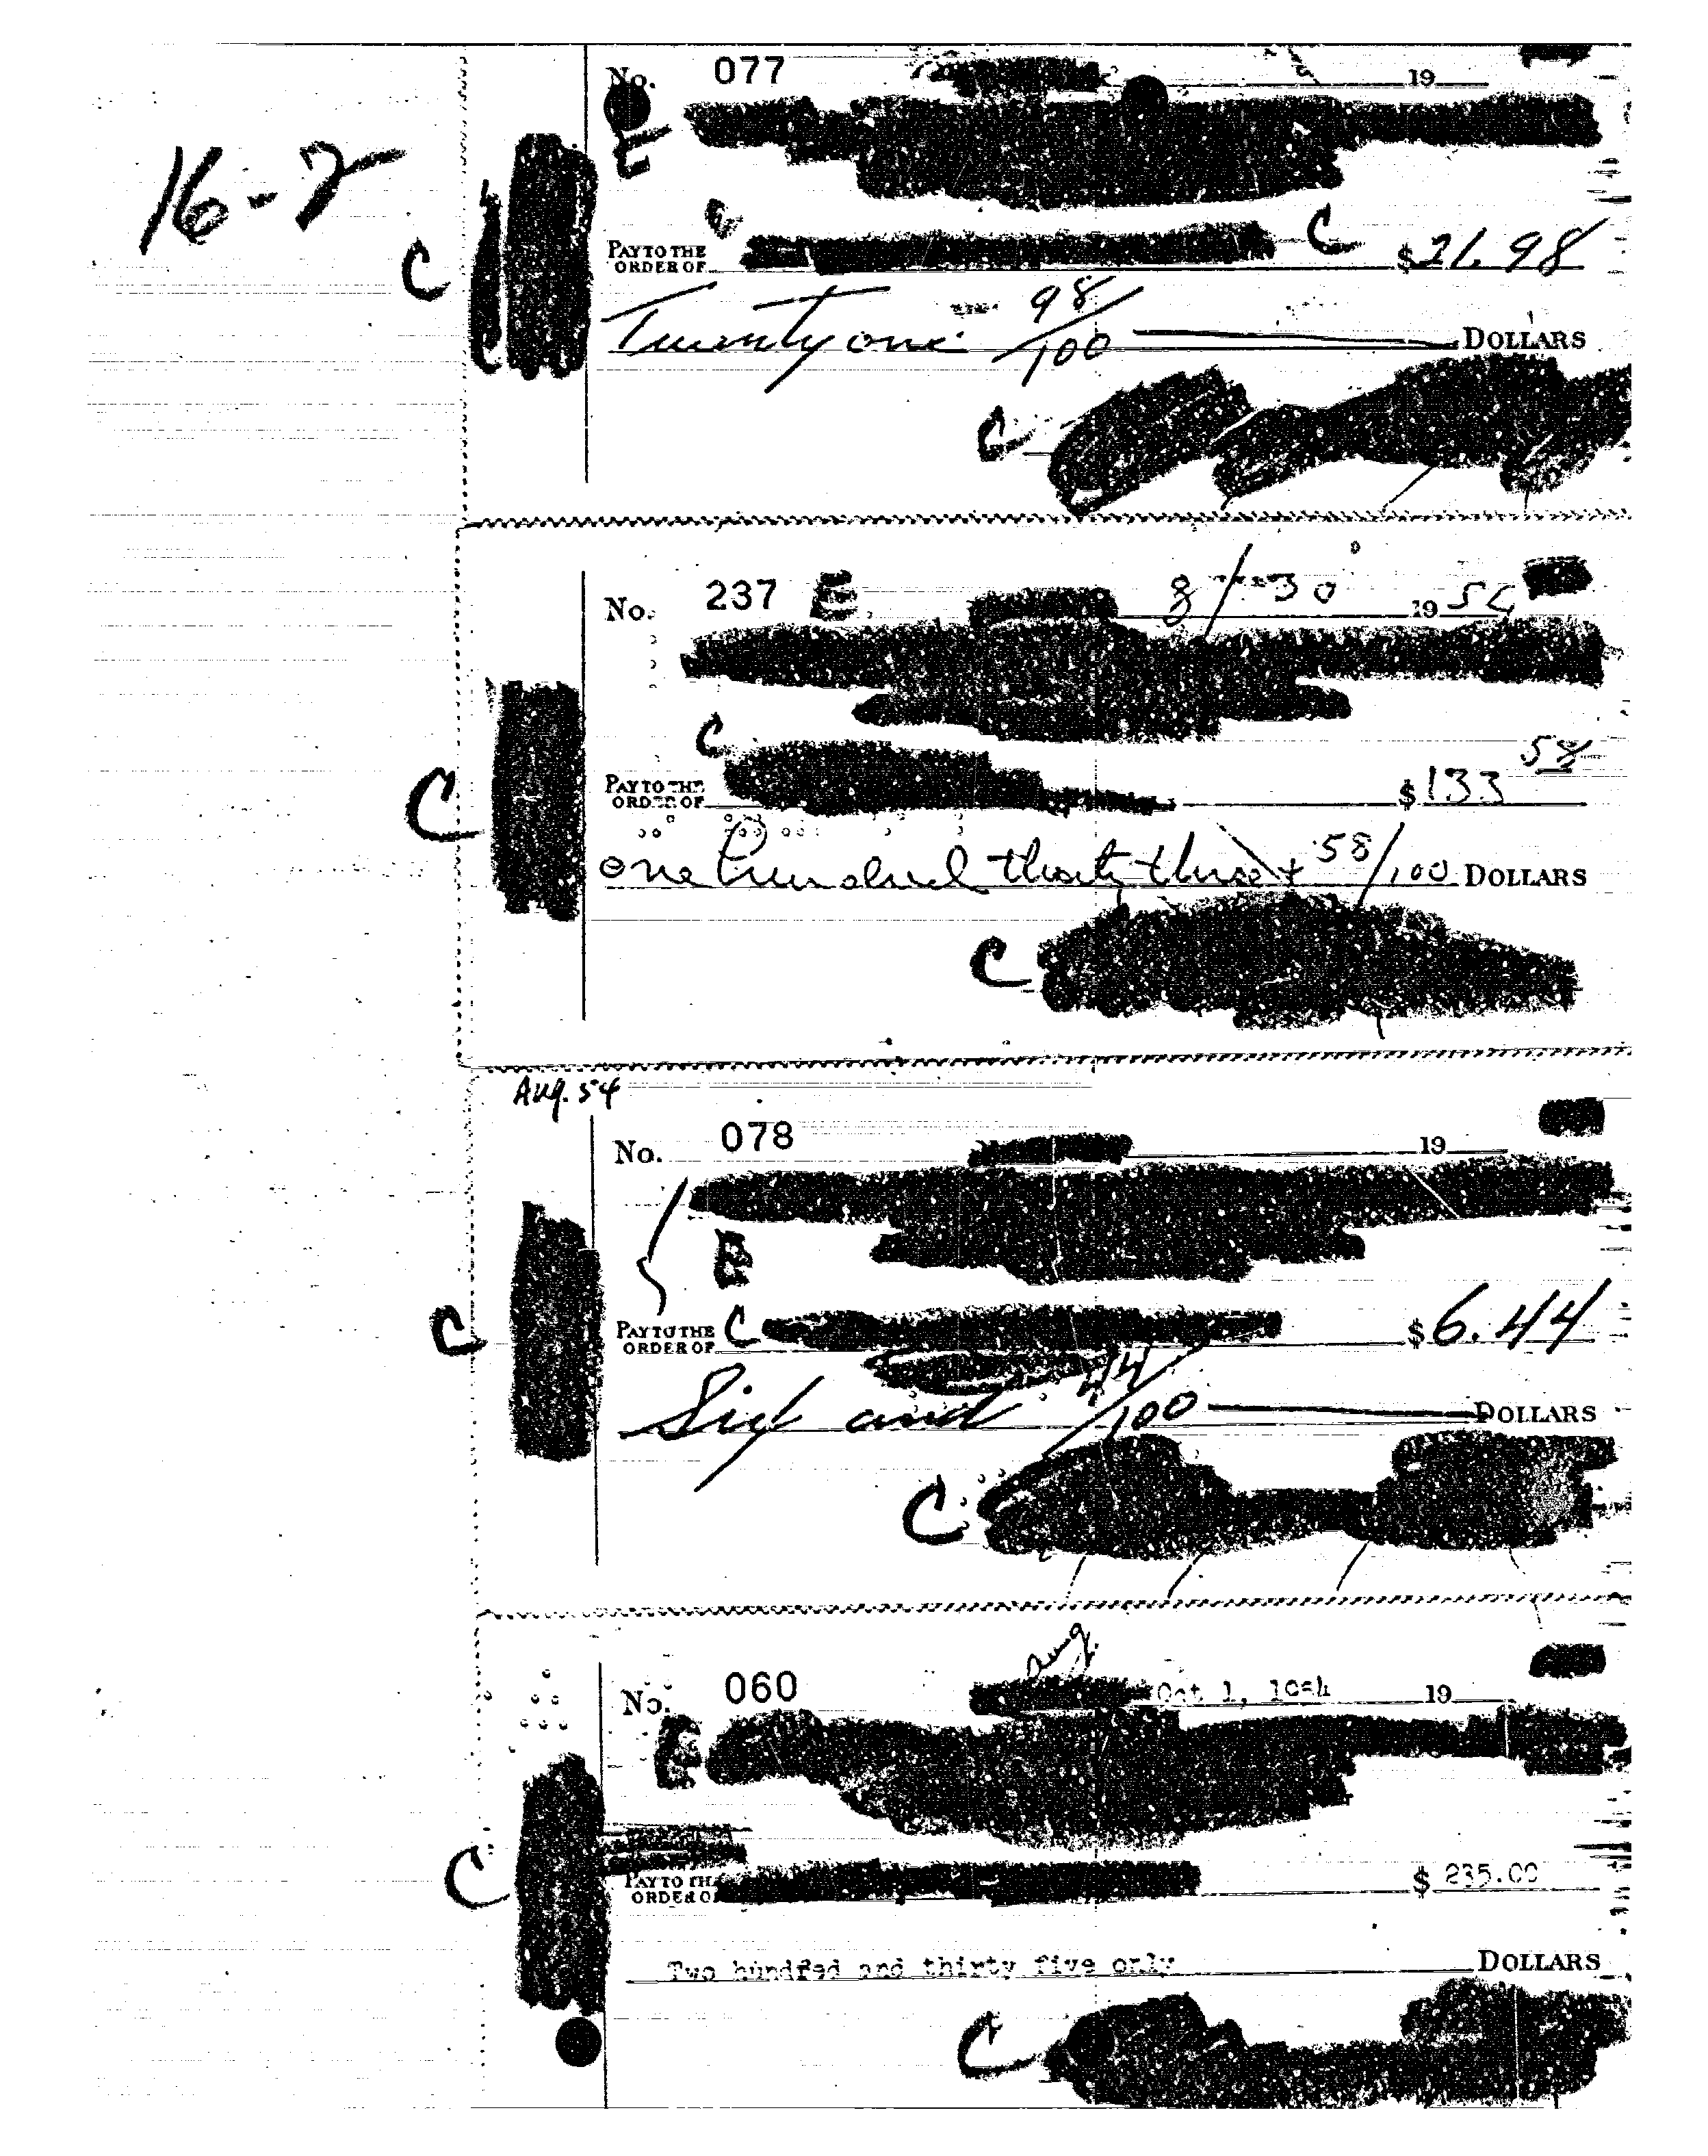 16-2
No. 077 19
E
C
PAY TO THE
ORDER OF C $21.98
Twenty one 98/100 DOLLARS
C
No. 237 E 8/30 1954
C
C
PAY TO THE
ORDER OF $133 58
one hundred thirty three + 58/100 DOLLARS
C
Aug. 54
No. 078 19
C
PAY TO THE
ORDER OF C $6.44
Six and 44/100 DOLLARS
C
Aug.
No. 060 Oct 1, 1954 19
C
PAY TO THE
ORDER OF $ 235.00
Two hundred and thirty five only DOLLARS
C